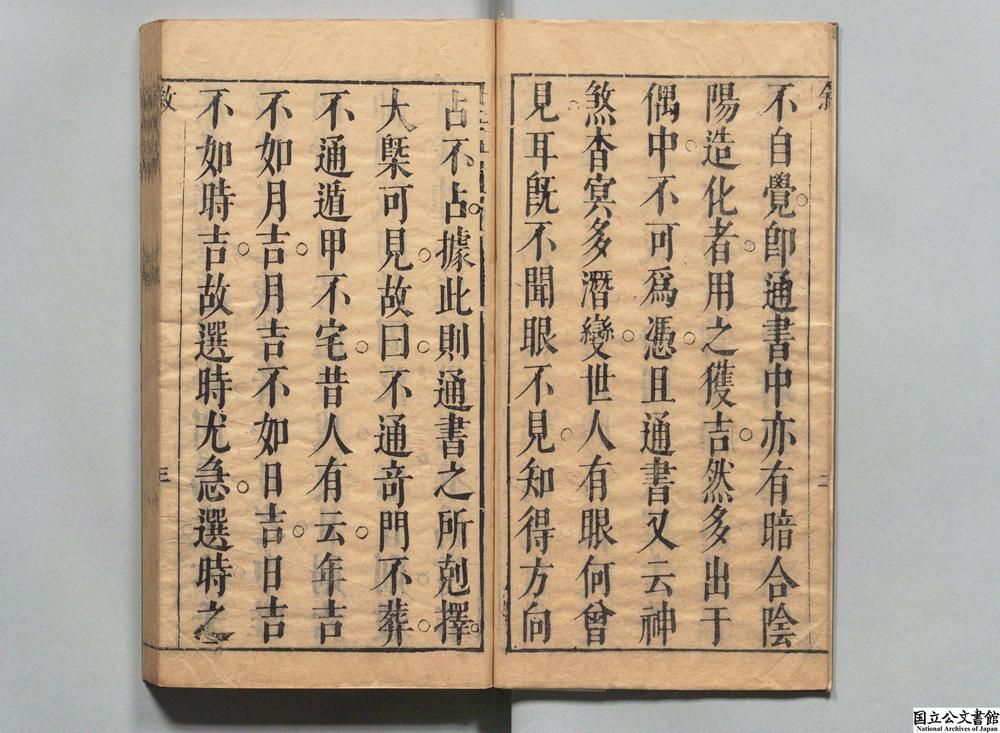 不自覺卽通書中亦有暗合陰
陽造化者用之獲吉然多出于
偶中不可爲憑且通書又云神
煞杳冥多潛變世人有眼何曾
見耳旣不聞眼不見知得方向
占不占據此則通書之所剋擇
大槩可見故曰不通奇門不葬
不通遁甲不宅昔人有云年吉
不如月吉月吉不如日吉日吉
不如時吉故選時尤急選時之
敘
三
国立公文書館
National Archives of Japan